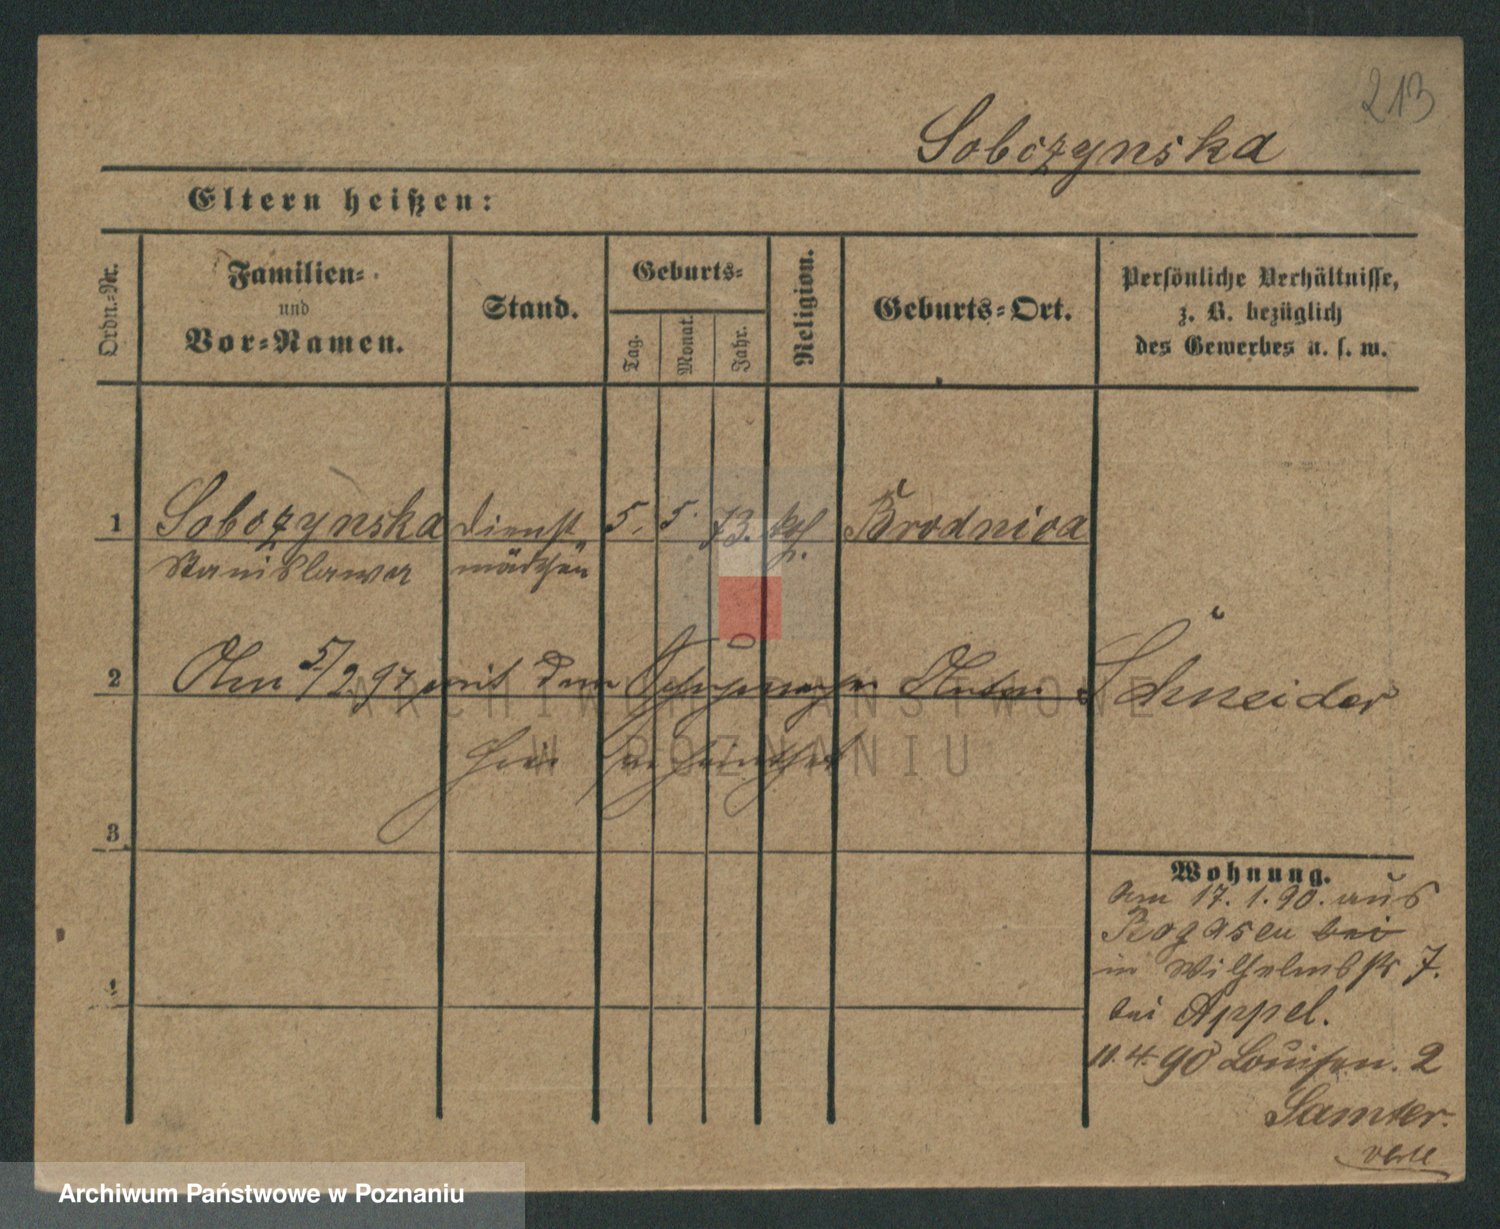 213
Sobczynska
Eltern heißen:
Ordn.-Nr.
Familien-
und
Vor-Namen.
Stand.
Geburts-
Tag.
Monat.
Jahr.
Religion.
Geburts-Ort.
Persönliche Verhältnisse,
z. B. bezüglich
des Gewerbes u. s. w.
1 Sobczynska Dienst 5. 5. 73. kth. Brodnica
Stanislawa mädchen
2 Am 5/2 97 mit dem Schuhmacher Anton Schneider
hier verheirathet
3
4
Wohnung.
Am 17. 1. 90. aus
Rogasen bei
in Wilhelmstr 7.
bei Appel.
11. 4. 90 Louisen. 2
Samter.
ARCHIWUM PAŃSTWOWE
W POZNANIU
Archiwum Państwowe w Poznaniu